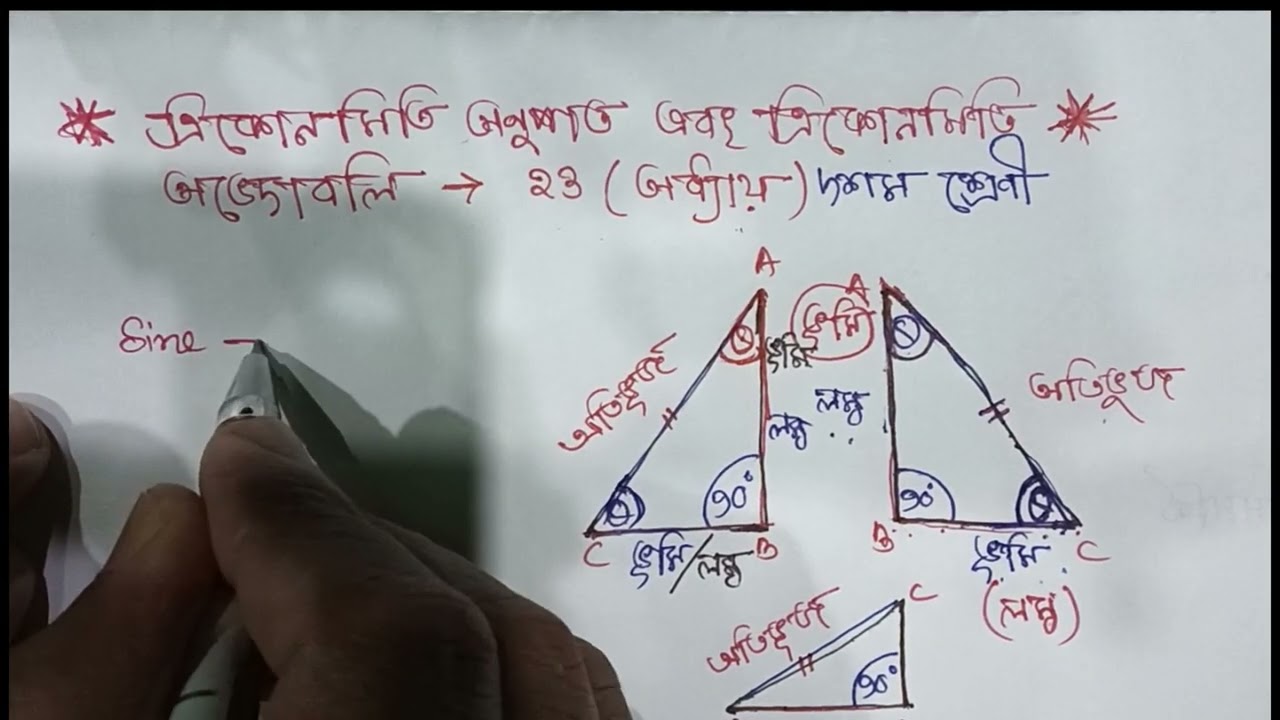 ত্রিকোনমিতি অনুপাত এবং ত্রিকোনমিতি
অভেদাবলি → ২৩ (অধ্যায়) দশম শ্রেণী
Sine -
A
A
ভূমি
θ
ভূমি
θ
অতিভূজ
অতিভূজ
লম্ব
লম্ব
θ
90°
90°
θ
C
B
B
C
ভূমি/লম্ব
ভূমি
(লম্ব)
অতিভূজ
C
90°